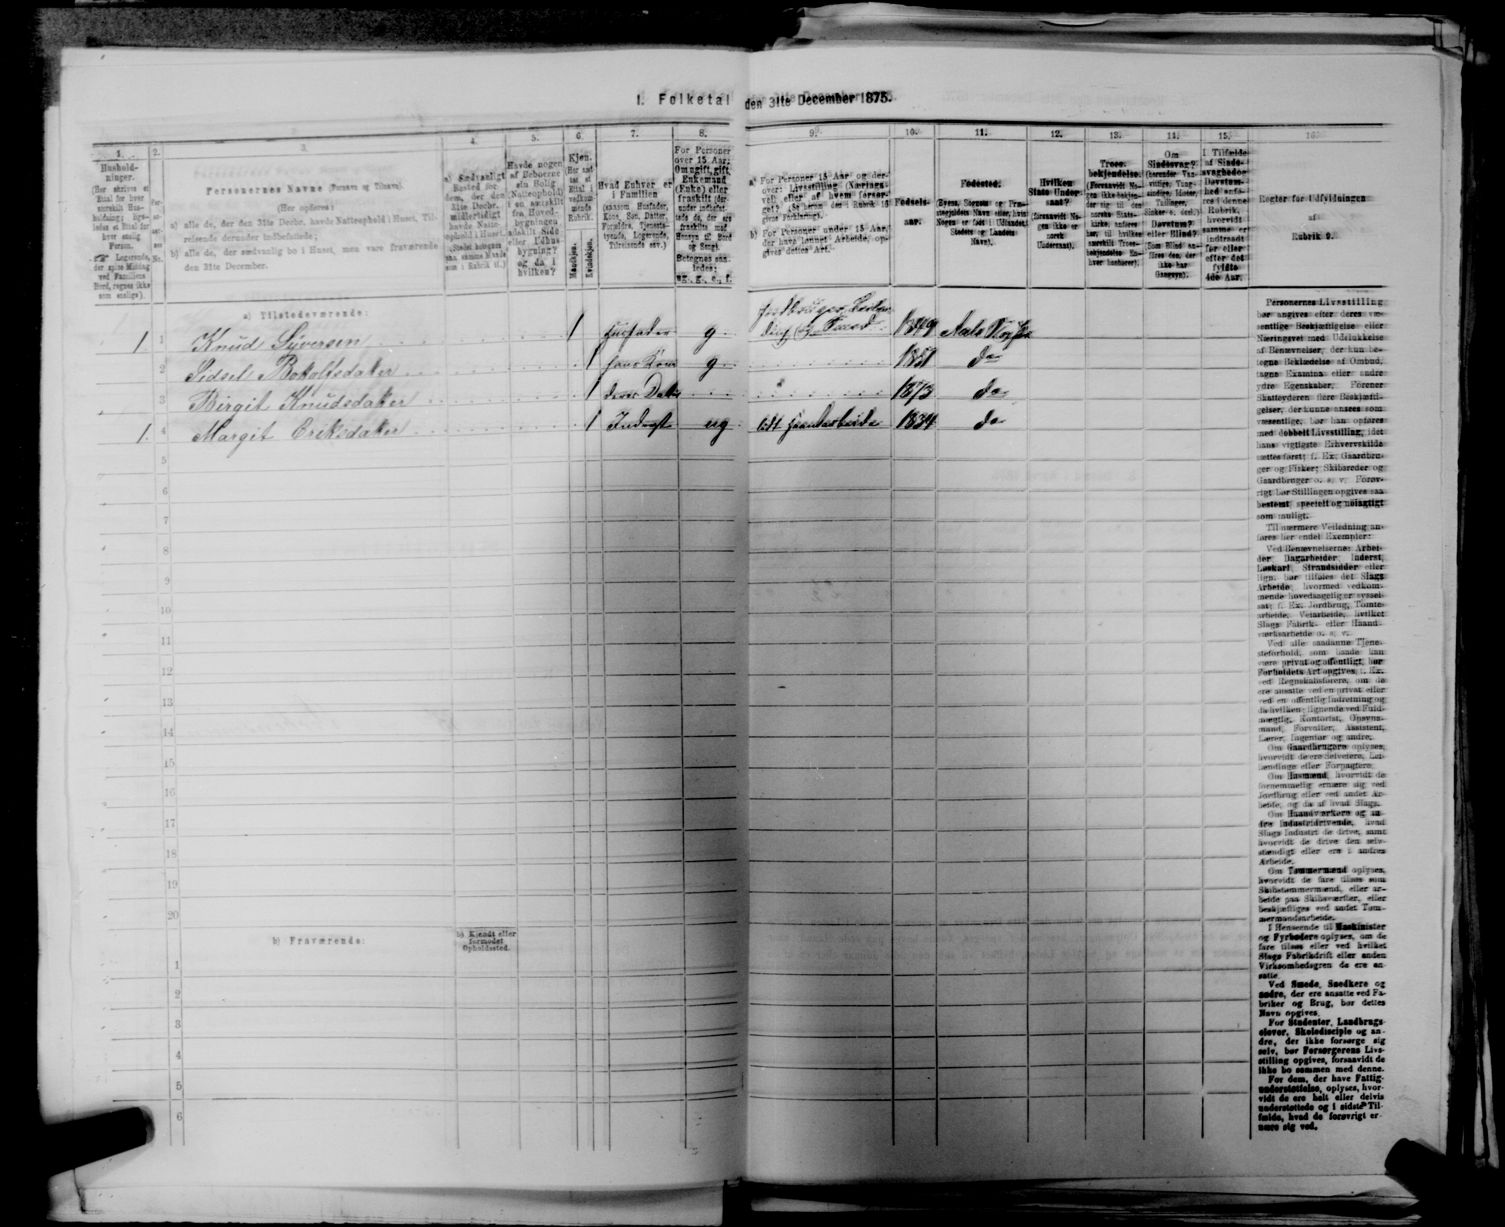 1. Folketal den 31te December 1875.
1.
2.
3.
4.
5.
6.
7.
8.
9.
10.
11.
12.
13.
14.
15.
16.
Hushold-
ninger.
(Her skrives et
Ettal for hver
særskilt Hus-
holdning; lige-
ledes et Ettal for
hver enslig
Person.
Logerende,
der spise Middag
ved Familiens
Bord, regnes ikke
som enslige).
Personernes Navne (Fornavn og Tilnavn).
(Her opføres:
a) alle de, der den 31te Decbr. havde Natteophold i Huset, Til-
reisende derunder indbefattede;
b) alle de, der sædvanlig bo i Huset, men vare fraværende
den 31te December.
a) Sædvanligt
Bosted for
dem, der den
31te Decbr.
midlertidigt
havde Natte-
ophold i Huset.
Havde nogen
af Beboerne
sin Bolig
(Natteophold)
i en særskilt
fra Hoved-
bygningen
adskilt Side
eller Udhus
bygning?
og da i
hvilken?
Kjøn.
(Her sæt
tes et
Ettal i
vedkom-
mende
Rubrik.
Mandkjøn.
Kvindekjøn.
Hvad Enhver er
i Familien
(saasom Husfader,
Kone, Søn, Datter,
Forældre, Tjeneste-
tyende, Logerende,
Tilreisende osv.)
For Personer
over 15 Aar:
Om ugift, gift,
Enkemand
(Enke) eller
fraskilt (der-
under indbefat-
tede de, der ere
fraskilte med
Hensyn til Bord
og Seng).
Betegnes saa-
ledes:
ug., g., e., f.
a) For Personer 15 Aar og der-
over: Livsstilling (Nærings-
vei) eller af hvem forsør-
get? (Se herom den i Rubrik 16
givne Forklaring).
b) For Personer under 15 Aar,
der have lønnet Arbeide, op-
gives dettes Art.
Fødsels-
aar.
Fødested.
(Byens, Sognets og Præ-
stegjeldets Navn eller, hvis
Nogen er født i Udlandet,
Stedets og Landets
Navn).
Hvilken
Stats Under-
saat?
(forsaavidt No-
gen ikke er
norsk
Undersaat).
Troes-
bekjendelse.
(Forsaavidt No-
gen ikke bekjen-
der sig til den
norske Stats-
kirke, anføres
her, til hvilken
særskilt Troes-
bekjendelse En-
hver henhører).
Om
Sindssvag?
(herunder Van-
vittige, Tung-
sindige, Idioter,
Tullinger,
Sinker o. desl.)
Døvstum?
eller Blind?
(Som Blind an-
føres den, der
ikke har
Gangsyn).
I Tilfælde
af Sinds-
svaghed og
Døvstum-
hed anfø-
res i denne
Rubrik,
hvorvidt
samme er
indtraadt
før eller
efter det
fyldte
4de Aar.
Regler for Udfyldningen
af
Rubrik 9.
a) Tilstedeværende:
1 1 Knud Syversen 1 Husfader g. Jordbruger, 1849 Aals Præstg
2 Sidsel Boholtsdatter 1 hans Kone g 1851 do
3 Birgit Knudsdatter 1 deres Datter 1873 do
1. 4 Margit Eriksdatter 1 Inderst ug lidt Haandarbeide 1834 do
5
6
7
8
9
10
11
12
13
14
15
16
17
18
19
20
b) Fraværende:
b) Kjendt eller
formodet
Opholdssted.
1
2
3
4
5
6
Personernes Livsstilling
bør angives efter deres væ-
sentlige Beskjæftigelse eller
Næringsvei med Udelukkelse
af Benævnelser, der kun be-
tegne Beklædelse af Ombud,
tagne Examina eller andre
ydre Egenskaber. Forener
Skatteyderen flere Beskjæfti-
gelser, der kunne ansees som
væsentlige, bør han opføres
med dobbelt Livsstilling, idet
hans vigtigste Erhvervskilde
sættes først; f. Ex. Gaardbru-
ger og Fisker; Skibsreder og
Gaardbruger o. s. v. Forøv-
rigt bør Stillingen opgives saa
bestemt, specielt og nøiagtigt
som muligt.
Til nærmere Veiledning an-
føres her endel Exempler:
Ved Benævnelserne: Arbei-
der, Dagarbeider, Inderst,
Løskarl, Strandsidder eller
lign. bør tilføies det Slags
Arbeide, hvormed vedkom-
mende hovedsagelig er syssel-
sat; f. Ex. Jordbrug, Tomte-
arbeide, Veiarbeide, hvilket
Slags Fabrik- eller Haand-
værksarbeide o. s. v.
Ved alle saadanne Tjene-
steforhold, som baade kan
være privat og offentligt, bør
Forholdets Art opgives, f. Ex.
ved Regnskabsførere, om de
ere ansatte ved en privat eller
ved en offentlig Indretning og
da hvilken; lignende ved Fuld-
mægtig, Kontorist, Opsyns-
mand, Forvalter, Assistent,
Lærer, Ingeniør og andre.
Om Gaardbrugere oplyses,
hvorvidt de ere Selveiere, Lei-
lændinge eller Forpagtere.
Om Husmænd, hvorvidt de
fornemmelig ernære sig ved
Jordbrug eller ved andet Ar-
beide, og da af hvad Slags.
Om Haandværkere og an-
dre Industridrivende, hvad
Slags Industri de drive, samt
hvorvidt de drive den selv-
stændigt eller ere i andres
Arbeide.
Om Tømmermænd oplyses,
hvorvidt de fare tilsøs som
Skibstømmermænd, eller ar-
beide paa Skibsværfter, eller
beskjæftiges ved andet Tøm-
mermandsarbeide.
I Henseende til Maskinister
og Fyrbødere oplyses, om de
fare tilsøs eller ved hvilket
Slags Fabrikdrift eller anden
Virksomhedsgren de ere an-
satte.
Ved Smede, Snedkere og
andre, der ere ansatte ved Fa-
briker og Brug, bør dettes
Navn opgives.
For Studenter, Landbrugs-
elever, Skoledisciple og an-
dre, der ikke forsørge sig
selv, bør Forsørgerens Livs-
stilling opgives, forsaavidt de
ikke bo sammen med denne.
For dem, der have Fattig-
understøttelse, oplyses, hvor-
vidt de ere helt eller delvis
understøttede og i sidste Til-
fælde, hvad de forøvrigt er-
nære sig ved.